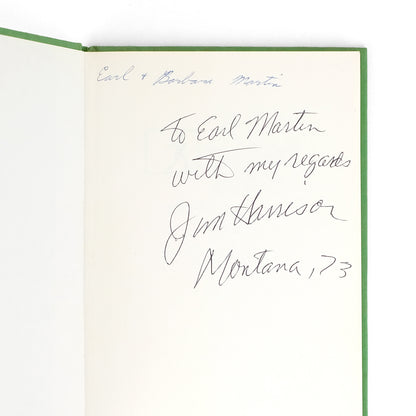 Earl + Barbara Martin
To Earl Martin
with my regards
Jim Harrison
Montana, 73